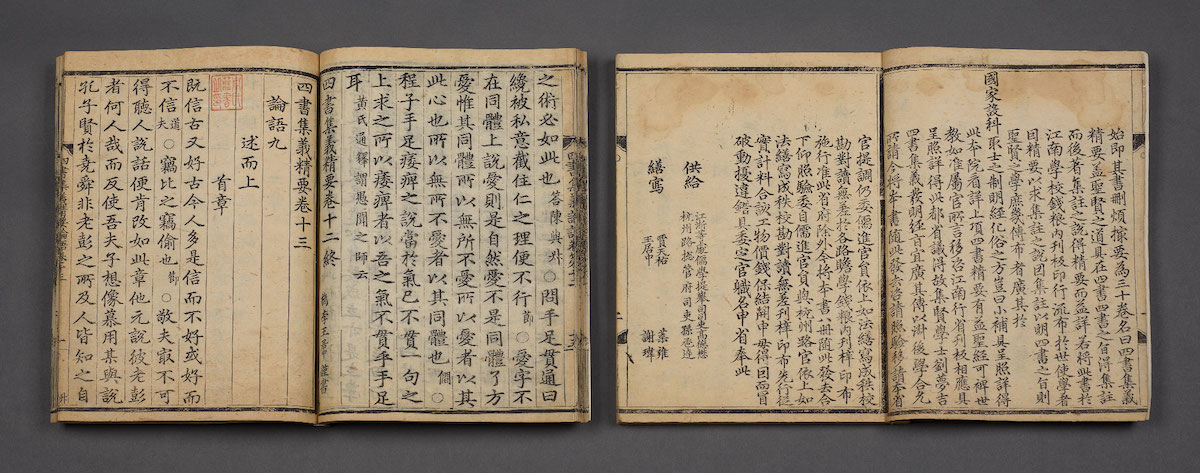 始即其書刪煩撮要為三十卷名曰四書集義
精要盖聖賢之道具在四書四書之旨得集註
而後著集註之說得精要而益詳若將此書於
江南學校錢粮內刋板印行流布於世使學者
因精要以求集註之說因集註以明四書之旨則
聖賢之學庶幾傳布者廣其於
國家設科取士之制明經化俗之方豈曰小補具呈照詳得
此本院看詳上項四書精要有益聖經可裨世
教如准屬官所言移咨江南行省刋板相應具
呈照詳得此都省議得故集賢學士劉夢吉
四書集義發明經旨宜廣其傳以淑後學合允
所請今將本書隨此發去咨請照驗移請本省
官提調仍委儒進官負依上如法繕寫成秩校
勘對讀無差於各路贍學錢粮內刋梓印布
施行准此省府除外今將本書八冊随此發去合
下仰照驗委自儒進官負與杭州路官依上如
法繕寫成秩校勘對讀無差刋梓印布先行從
實計料合該工物價錢保結開申毋得因而冒
破動擾違錯具委定官職名申省奉此
供給
江浙等處儒學提舉司吏高德懋
杭州路總管府司吏孫應逵
繕寫
賈天祐 葉雍
王居中 謝瑋
之術必如此也 答陳與叔 ○問手足貫通曰
纔被私意截住仁之理便不行 節 ○愛字不
在同體上說愛則是自然愛不是同體了方
愛惟其同體所以無所不愛所以愛者以其
此心也所以無所不愛者以其同體也 僩 ○
程子手足痿痺之說當於氣已不貫一句之
上求之所以痿痺者以吾之氣不貫乎手足
耳 黃氏通釋謂愚聞之師云
四書集義精要卷十二終
四書集義精要卷十三
論語九
述而上
首章
既信古又好古今人多是信而不好或好而
不信 道夫 ○竊比之竊偷也 節 ○敬夫最不可
得聽人說話便肯改如此章他元說彼老彭
者何人哉而反使吾夫子想像慕用某與說
孔子賢於堯舜非老彭之所及人皆知之自